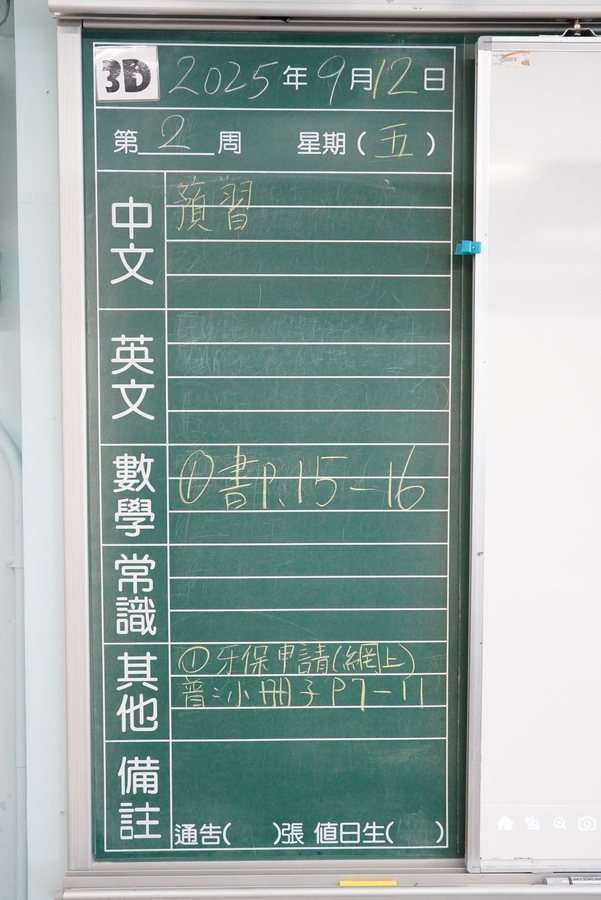 3D 2025年9月12日
第2周 星期(五)
中文 預習
英文
數學 ①書P.15-16
常識
其他 ①牙保申請(網上)
普:小冊子P7-11
備註
通告( )張 值日生( )